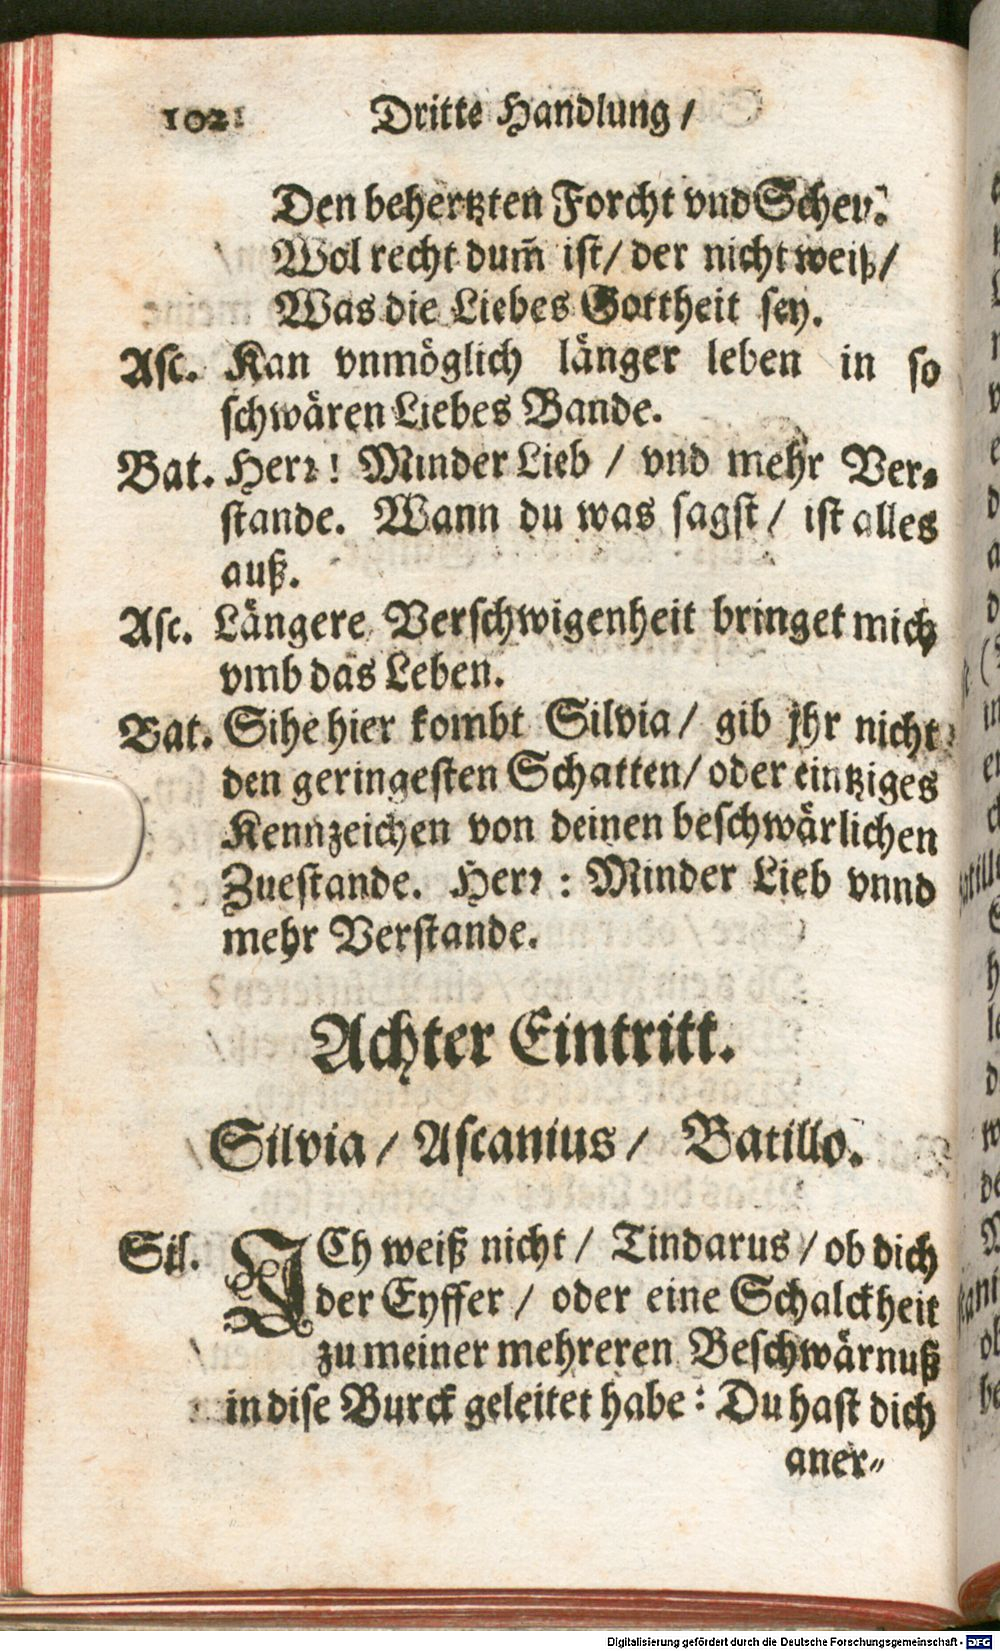 102 Dritte Handlung /
Den behertzten Forcht vnd Schev.
Wol recht dum̃ ist / der nicht weiß /
Was die Liebes Gottheit sey.
Asc. Kan vnmöglich länger leben in so
schwären Liebes Bande.
Bat. Herr ! Minder Lieb / vnd mehr Ver⸗
stande. Wann du was sagst / ist alles
auß.
Asc. Längere Verschwigenheit bringet mich
vmb das Leben.
Bat. Sihe hier kombt Silvia / gib jhr nicht
den geringesten Schatten / oder eintziges
Kennzeichen von deinen beschwärlichen
Zuestande. Herr : Minder Lieb vnnd
mehr Verstande.
Achter Eintritt.
Silvia / Ascanius / Batillo.
Sil. ICh weiß nicht / Tindarus / ob dich
der Eyffer / oder eine Schalckheit
zu meiner mehreren Beschwärnuß
in dise Burck geleitet habe : Du hast dich
aner⸗
Digitalisierung gefördert durch die Deutsche Forschungsgemeinschaft - DFG